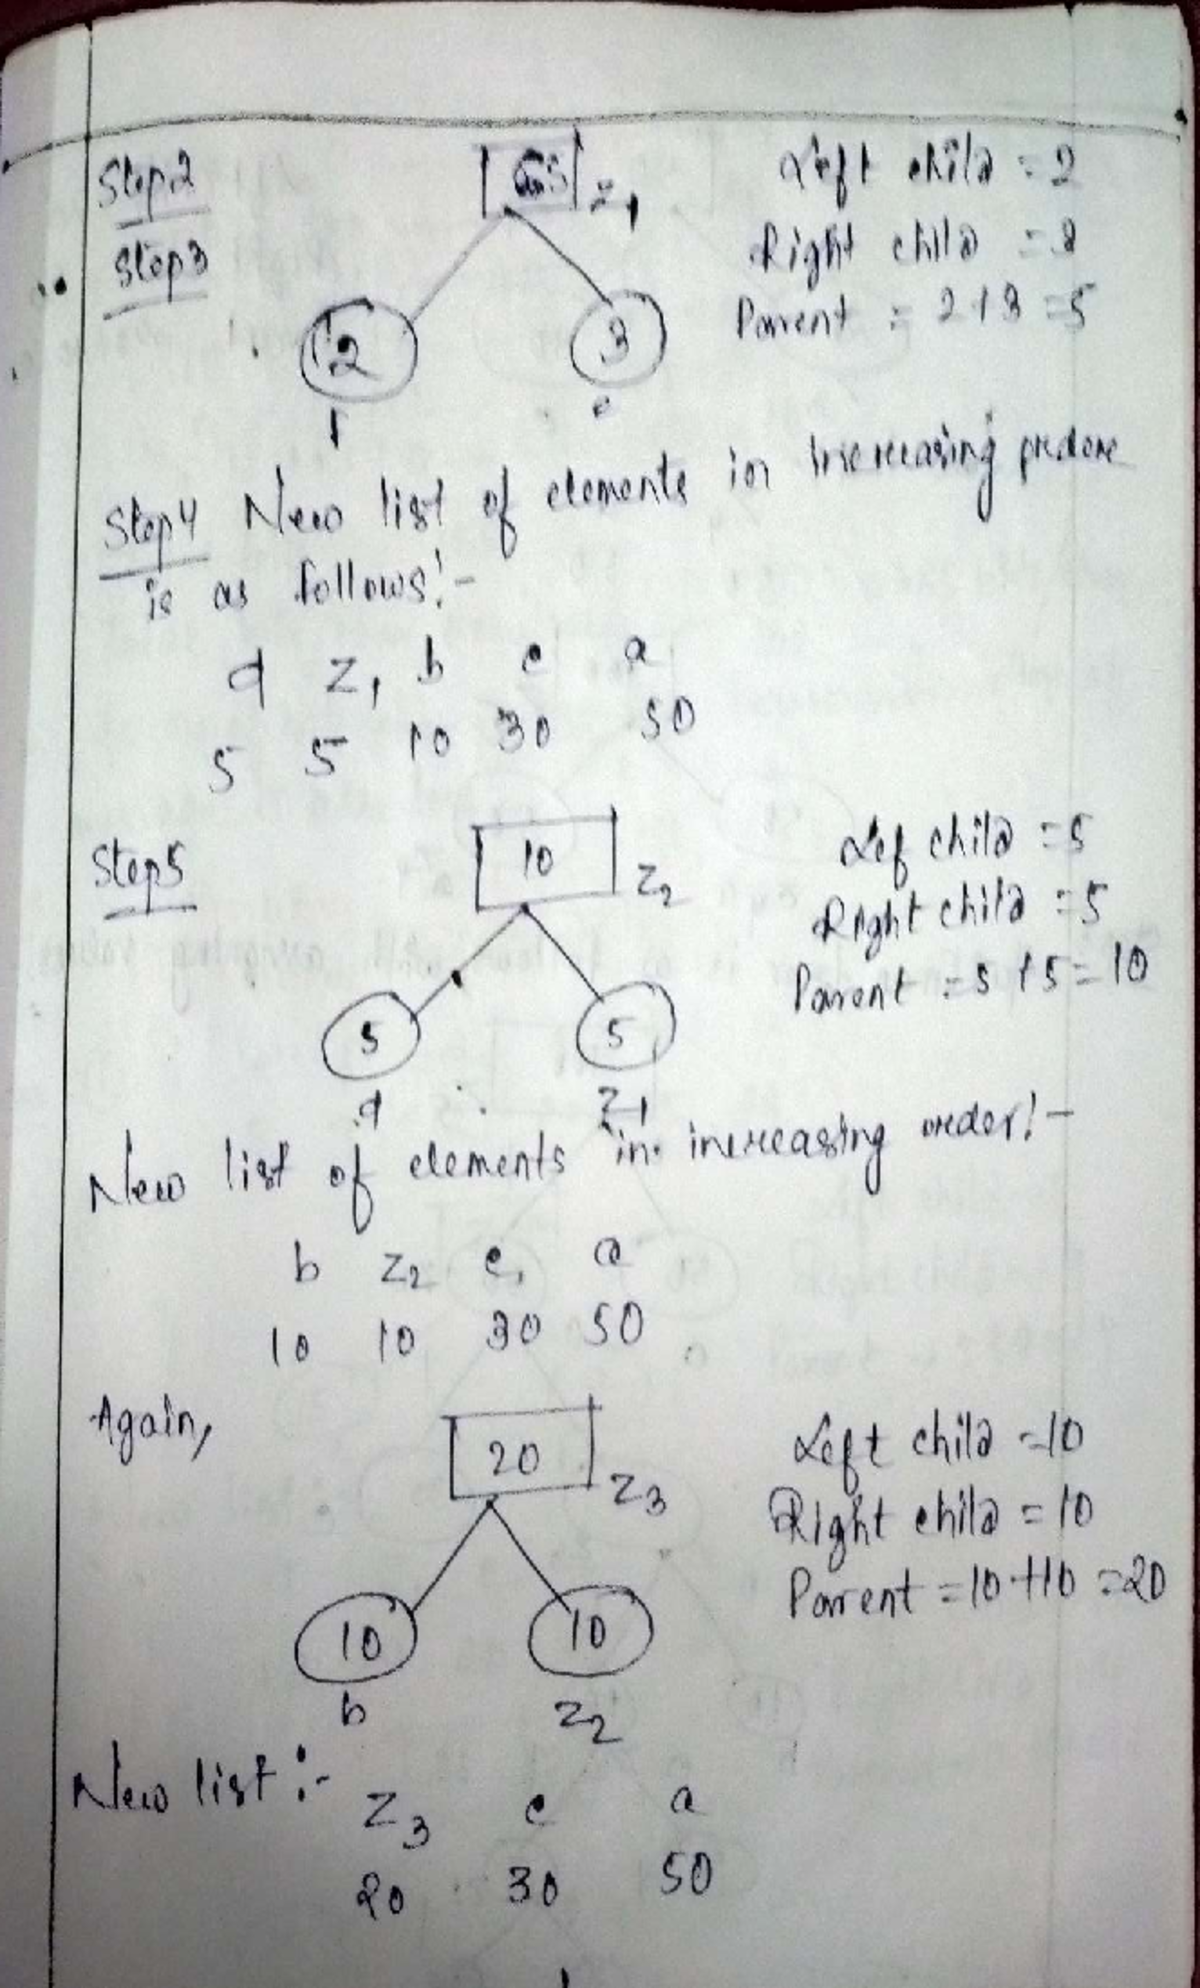 Step2
5 z1
Left child = 2
Step3
Right child = 3
Parent = 2+3 = 5
2 3
e
Step4 New list of elements in increasing
is as follows:-
d z1 b c a
5 5 10 30 50
Step5
10 z2
Lef child = 5
Right child = 5
Parent = 5+5 = 10
5 5
d z1
New list of elements in increasing order:-
b z2 c, a
10 10 30 50
Again,
20 z3
Left child = 10
Right child = 10
Parent = 10+10 = 20
10 10
b z2
New list :- z3 c a
20 30 50